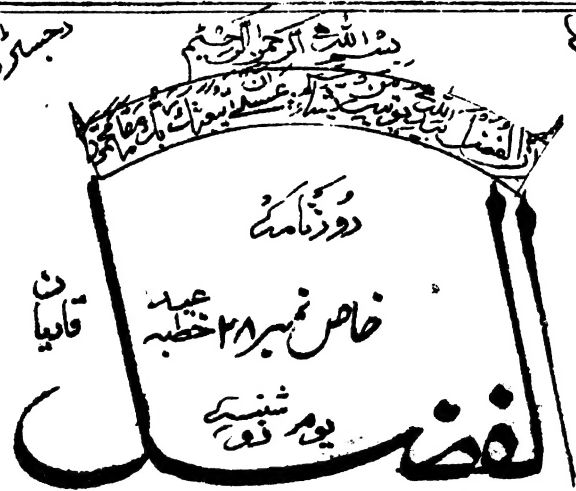 رجسٹرڈ
بسم اللہ الرحمن الرحیم
ان الفضل بید اللہ یؤتیہ من یشاء عسیٰ ان یبعثک ربک مقاما محمودا
روزنامہ
قادیان
خاص نمبر ۲۸ خطبہ عید
یوم دو شنبہ
الفضل